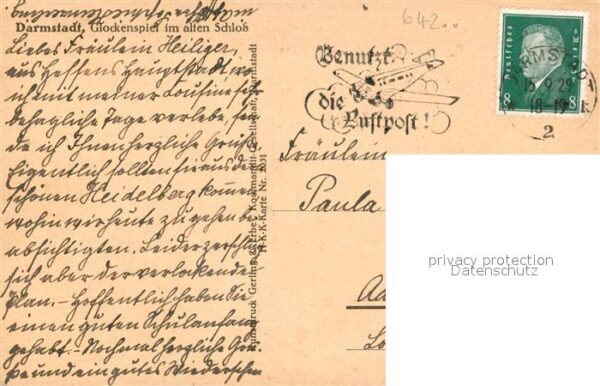 Darmstadt, Glockenspiel im alten Schloß
Liebes Fräulein Heiliger,
aus Hessens Hauptstadt, wo
ich mit meiner Cousine sehr
behagliche Tage verlebe, sen-
de ich Ihnen herzliche Grüße.
Eigentlich sollten sie aus dem
schönen Heidelberg kommen,
wohin wir heute zu gehen be-
absichtigten. Leider zerschlug
sich aber der verlockende
Plan. - Hoffentlich haben Sie
einen guten Schulanfang
gehabt. - Nochmal herzliche Grü-
ße und ein gutes Wiedersehen
H-K-K-Karte Nr. 2031
642..
Benutzt
die
Luftpost!
Deutsches Reich
8 8
15.9.29
18-19
2
Fräulein
Paula
privacy protection
Datenschutz